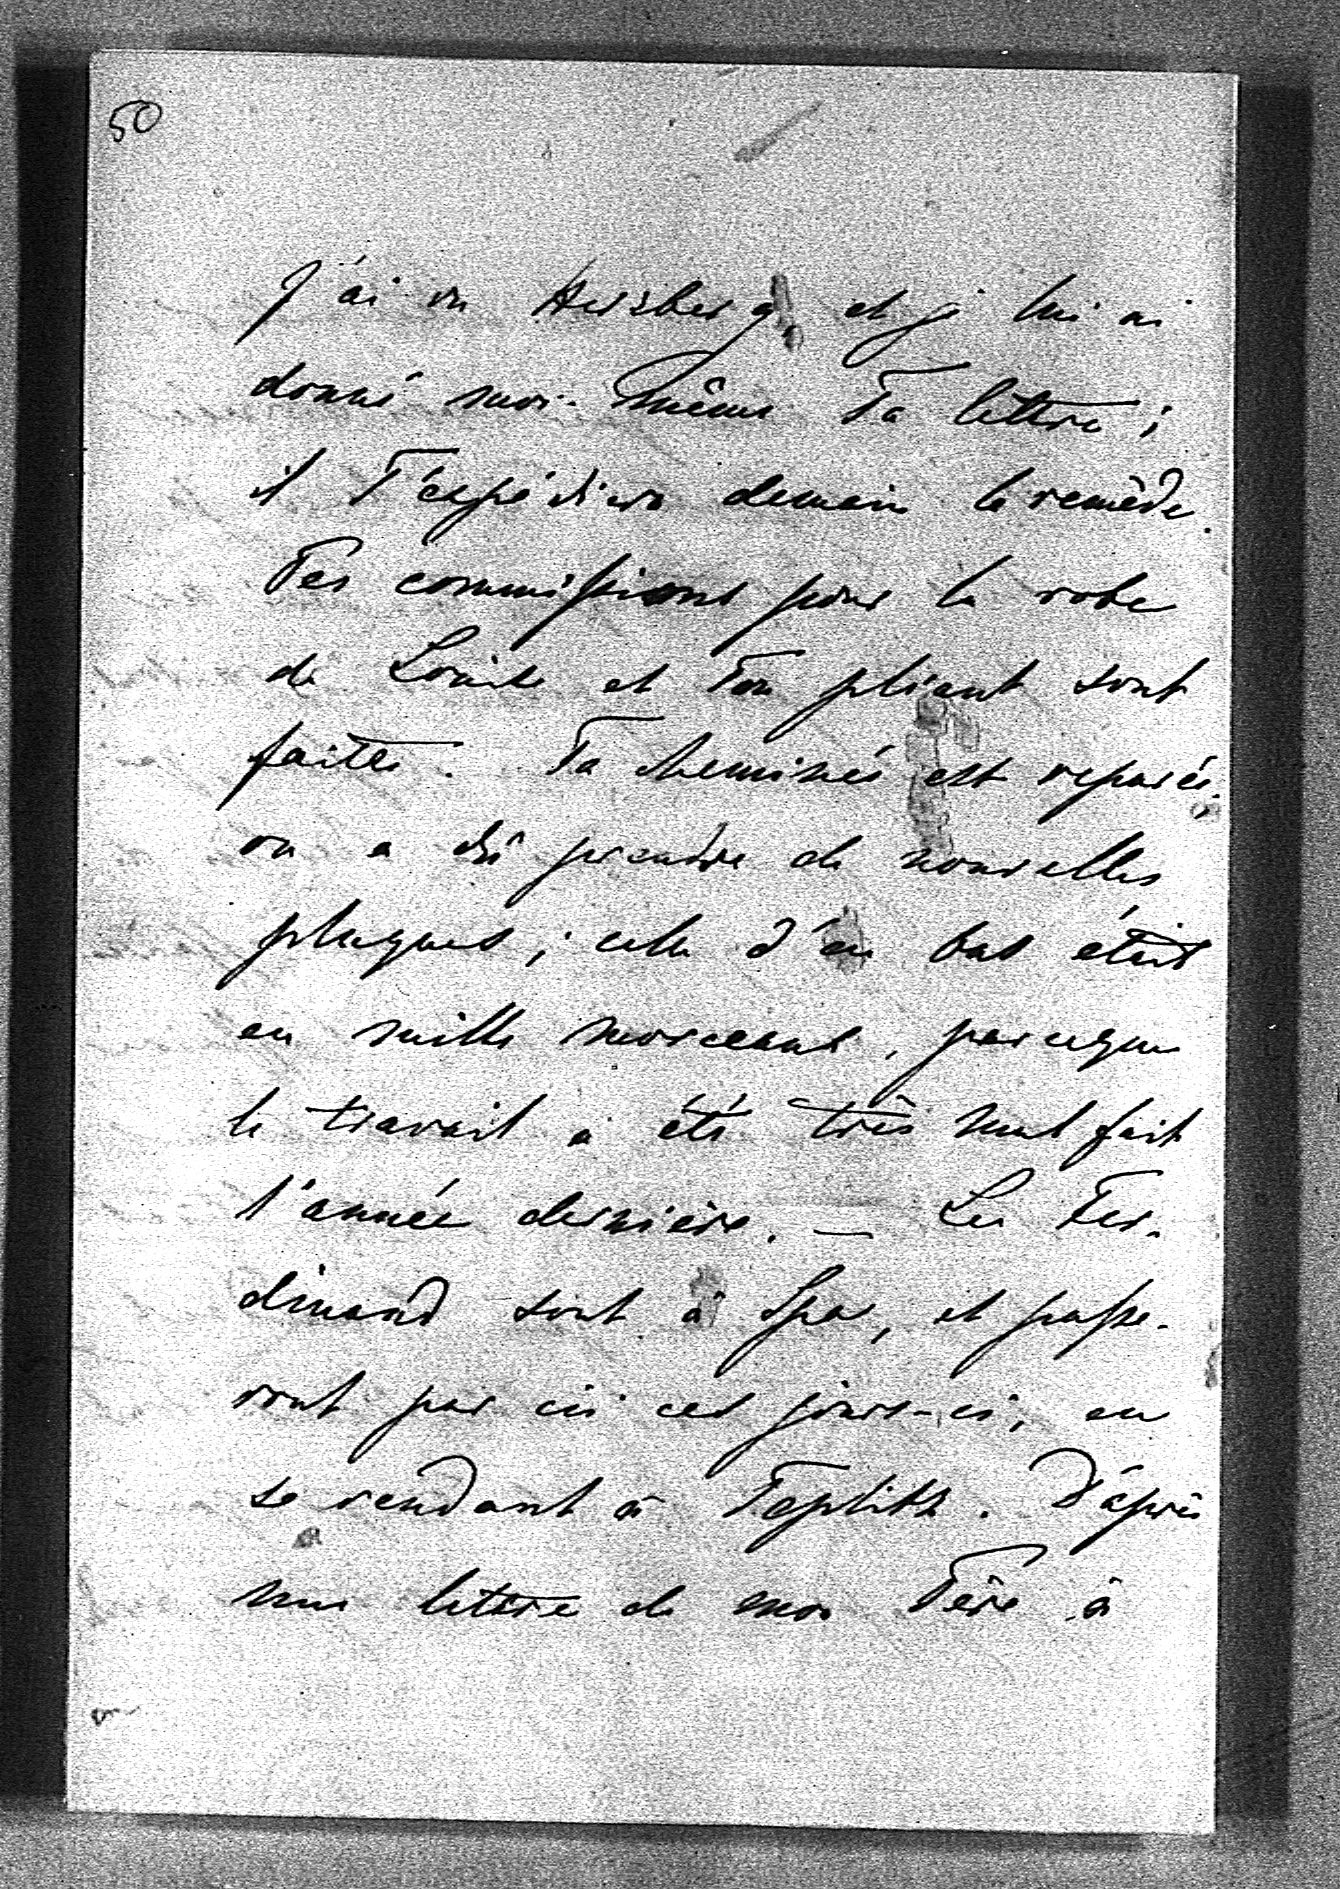 50
J'ai vu Herzberg, et je lui ai
donné moi-même Ta lettre;
il T'expédiera demain le remède.
Tes commissions pour la robe
de Louise et Ton pliant sont
faites. Ta cheminée est reparée,
on a dû prendre de nouvelles
plaques; celle d'en bas était
en mille morceaux, parceque
le travail a été très mal fait
l'année dernière. — Les Fer-
dinand sont à Spa, et passe-
ront par ici ces jours-ci, en
se rendant à Teplitz. D'après
une lettre de mon Père à